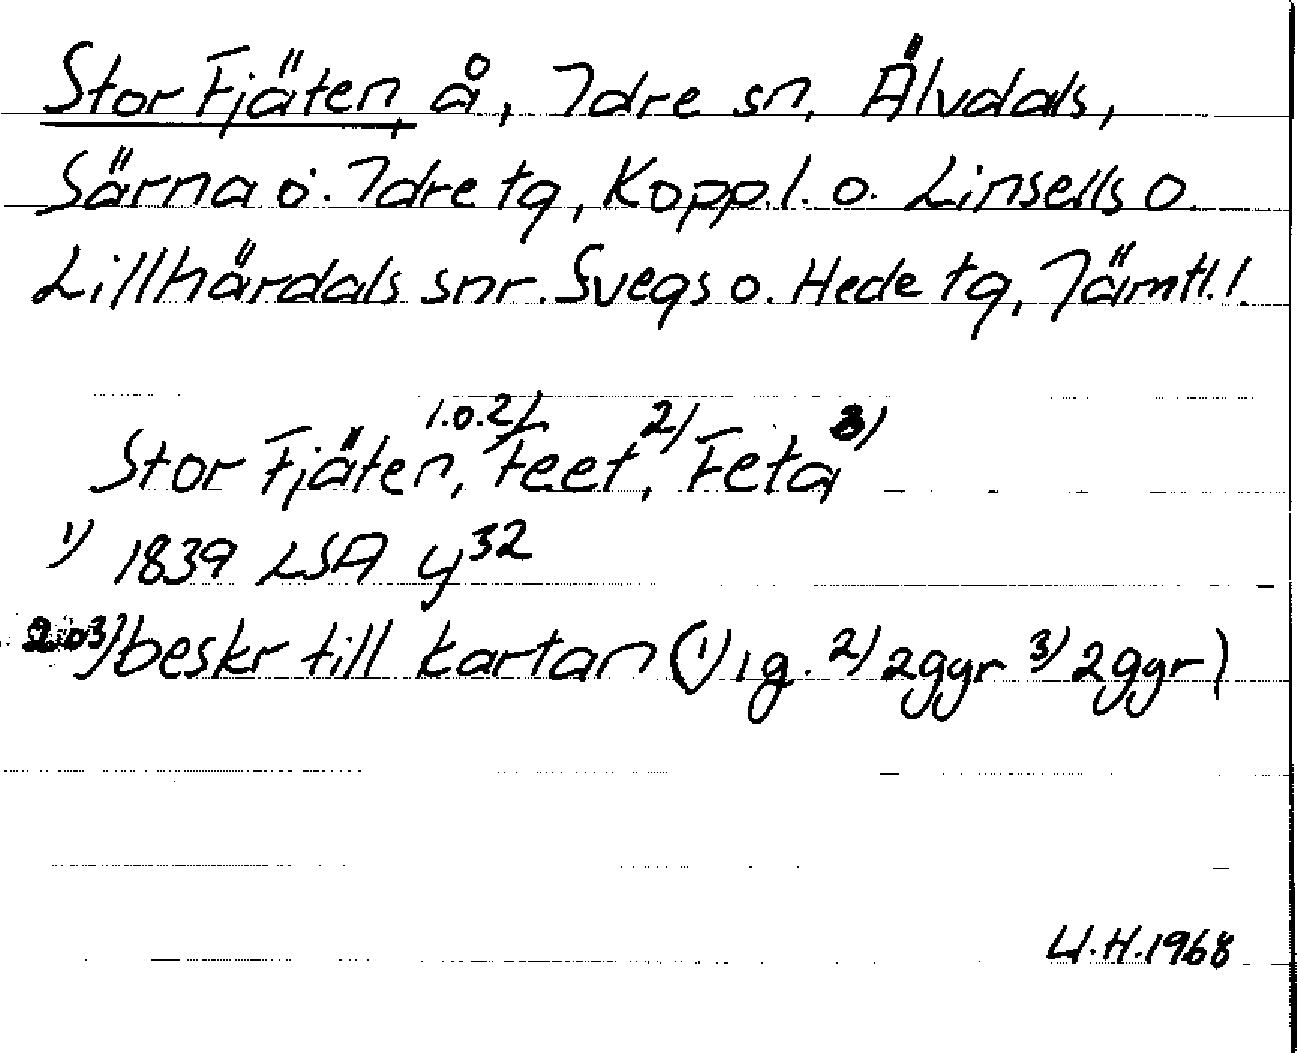 Stor Fjäten, å, Idre sn, Älvdals,
Särna o. Idre tg, Kopp.l. o. Linsells o.
Lillhärdals snr. Svegs o. Hede tg, Jämtl.l.
Stor Fjäten, 1.o.2/ Feet, 2/ Feta 3/
1/ 1839 LSA y32
2 o 3/ beskr till kartan (1/ 1 g. 2/ 2ggr 3/ 2ggr)
U.H.1968